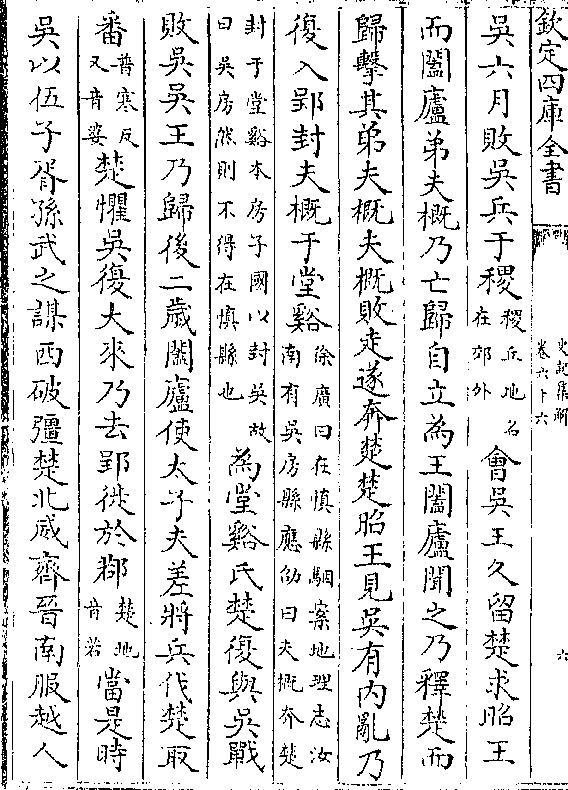 欽定四庫全書
史記集解
卷六十六
六
吳六月敗吳兵于稷稷丘地名在郊外會吳王久留楚求昭王
而闔廬弟夫概乃亡歸自立為王闔廬聞之乃釋楚而
歸擊其弟夫概夫概敗走遂奔楚楚昭王見吳有內亂乃
復入郢封夫概于堂谿徐廣曰在慎縣駰案地理志汝南有吳房縣應劭曰夫概奔楚
封于堂谿本房子國以封吳故曰吳房然則不得在慎縣也為堂谿氏楚復與吳戰
敗吳吳王乃歸後二歲闔廬使太子夫差將兵伐楚取
番普寒反又音婆楚懼吳復大來乃去郢徙於鄀楚地音若當是時
吳以伍子胥孫武之謀西破彊楚北威齊晉南服越人